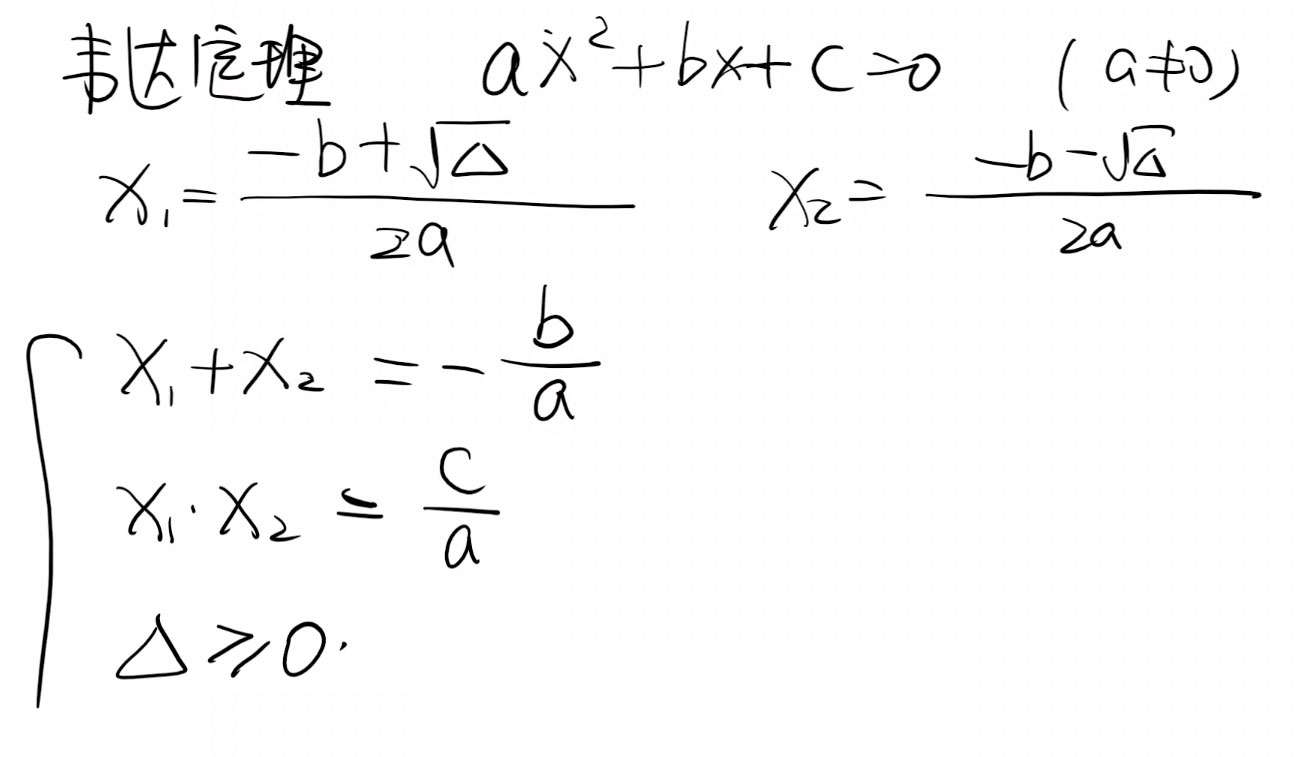 韦达定理 ax²+bx+c=0 (a≠0)
x₁=(-b+√Δ)/(2a) x₂=(-b-√Δ)/(2a)
x₁+x₂=-b/a
x₁·x₂=c/a
Δ≥0.